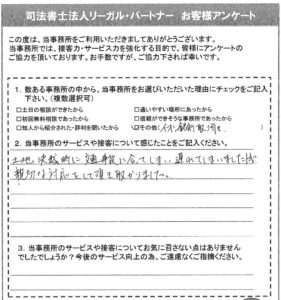 司法書士法人リーガル・パートナー お客様アンケート
この度は、当事務所をご利用いただきましてありがとうございます。
当事務所では、接客力・サービス力を強化する目的で、皆様にアンケートの
ご協力を頂いております。お手数ですが、ご協力下されば幸いです。
1. 数ある事務所の中から、当事務所をお選びいただいた理由にチェックをご記入
下さい。(複数選択可)
□土日の相談ができたから □通いやすい場所にあったから
□初回無料相談であったから □信頼ができそうな事務所であったから
□知人から紹介された・評判を聞いたから ☑その他(
2. 当事務所のサービスや接客について感じたことをご記入ください。
土地決裁時に 事故に合てしまい遅れてしまいましたが
親切な対応をして頂き助かりました。
3. 当事務所のサービスや接客についてお気に召さない点はありません
でしたでしょうか?今後のサービス向上の為、ご遠慮なくご指摘ください。